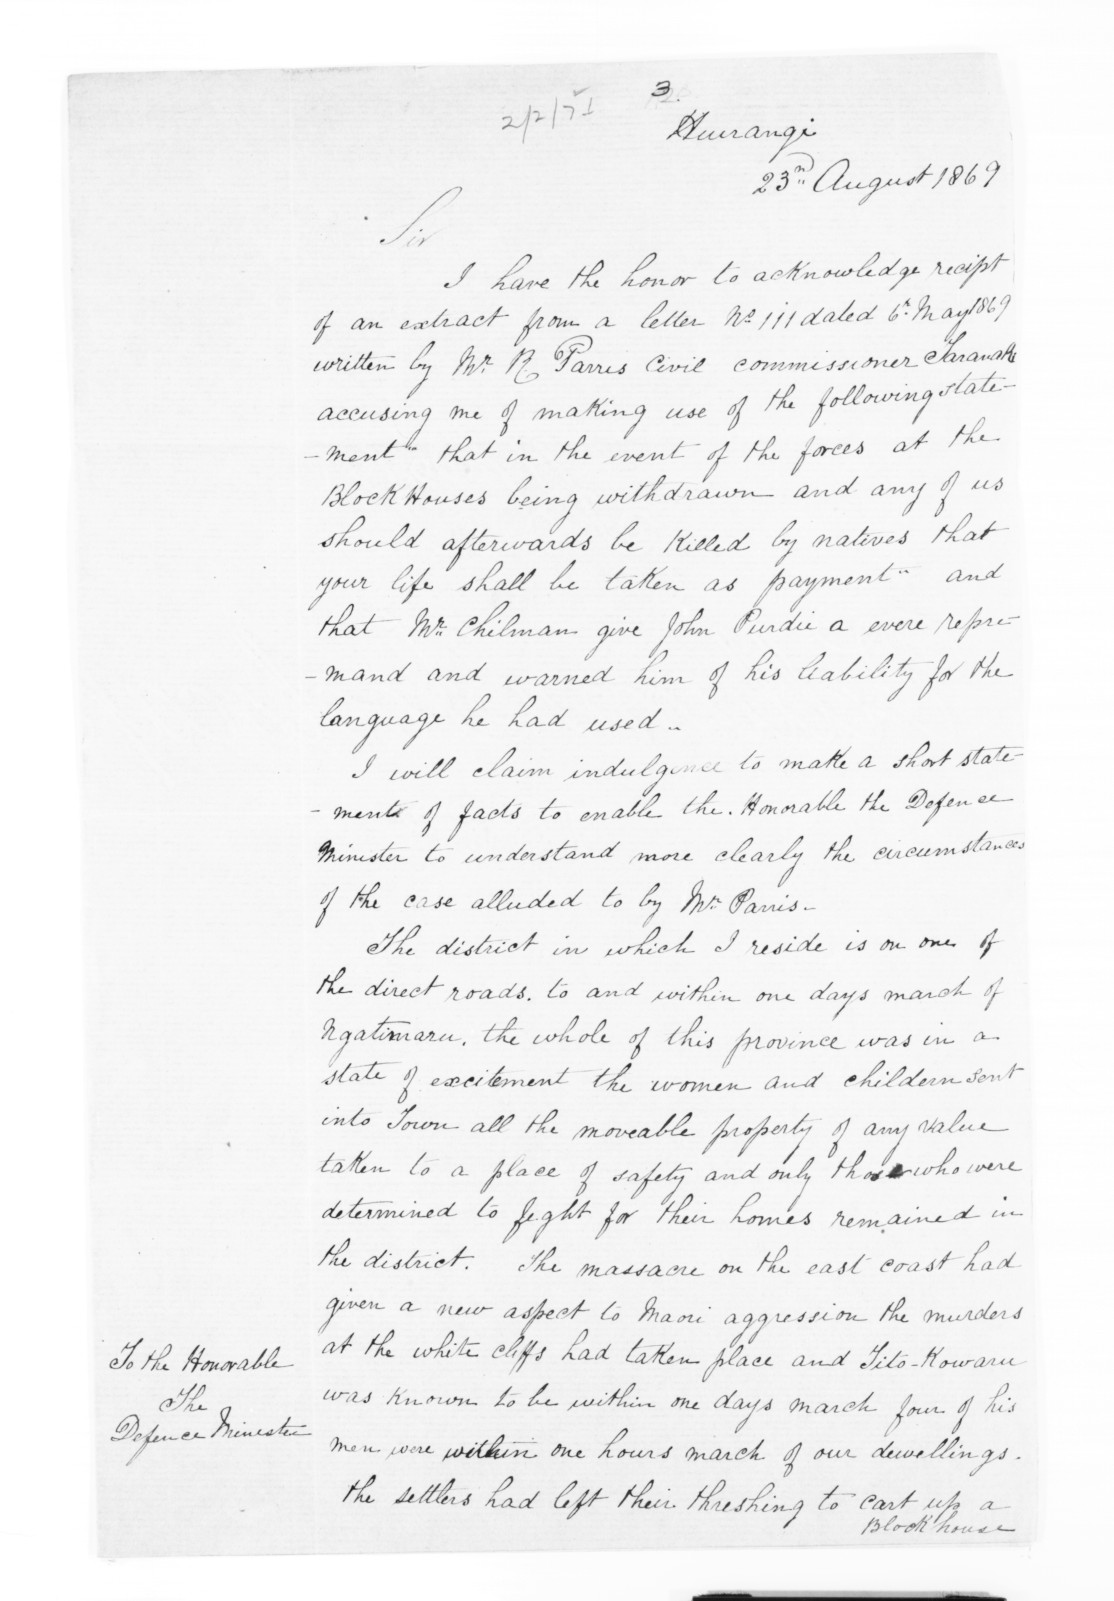 3.
2/2/71
Huirangi
23rd August 1869
Sir
I have the honor to acknowledge recipt
of an extract from a letter No 111 dated 6th May 1869
written by Mr R Parris Civil commissioner Taranaki
accusing me of making use of the following state-
-ment " that in the event of the forces at the
Block Houses being withdrawn and any of us
should afterwards be Killed by natives that
your life shall be taken as payment " and
that Mr Chilman give John Purdie a evere repre-
-mand and warned him of his liability for the
language he had used..
I will claim indulgence to make a short state-
-ment of facts to enable the. Honorable the Defence
Minister to understand more clearly the circumstances
of the case alluded to by Mr Parris-
The district in which I reside is on one of
the direct roads. to and within one days march of
Ngatimaru. the whole of this province was in a
state of excitement the women and childern sent
into Town all the moveable property of any value
taken to a place of safety and only those who were
determined to feght for their homes remained in
the district. The massacre on the east coast had
given a new aspect to Maori aggression the murders
at the white cliffs had taken place and Tito-Kowaru
was known to be within one days march four of his
men were within one hours march of our dewellings.
the settlers had left their threshing to cart up a
Block house
To the Honorable
The
Defence Minister